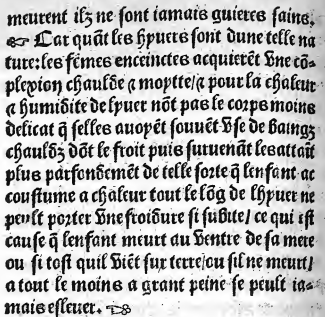 meurent ilz ne sont iamais guieres sains.
☞ Car quãt les hyuers sont dune telle na
ture: les fẽmes enceinctes acquierẽt vne cõ-
plexion chaulde ⁊ moytte/⁊ pour la chaleur
⁊ humidite de lyuer nõt pas le corps moins
delicat q̃ selles auoyẽt souuẽt vse de baingz
chauldz dõt le froit puis suruenãt les attaĩt
plus parfondemẽt de telle sorte q̃ lenfant ac
coustume a chaleur tout le lõg de lhyuer ne
peult porter vne froidure si subite/ ce qui est
cause q̃ lenfant meurt au ventre de sa mere
ou si tost quil viẽt sur terre/ou sil ne meurt/
a tout le moins a grant peine se peult ia-
mais esleuer. ☜